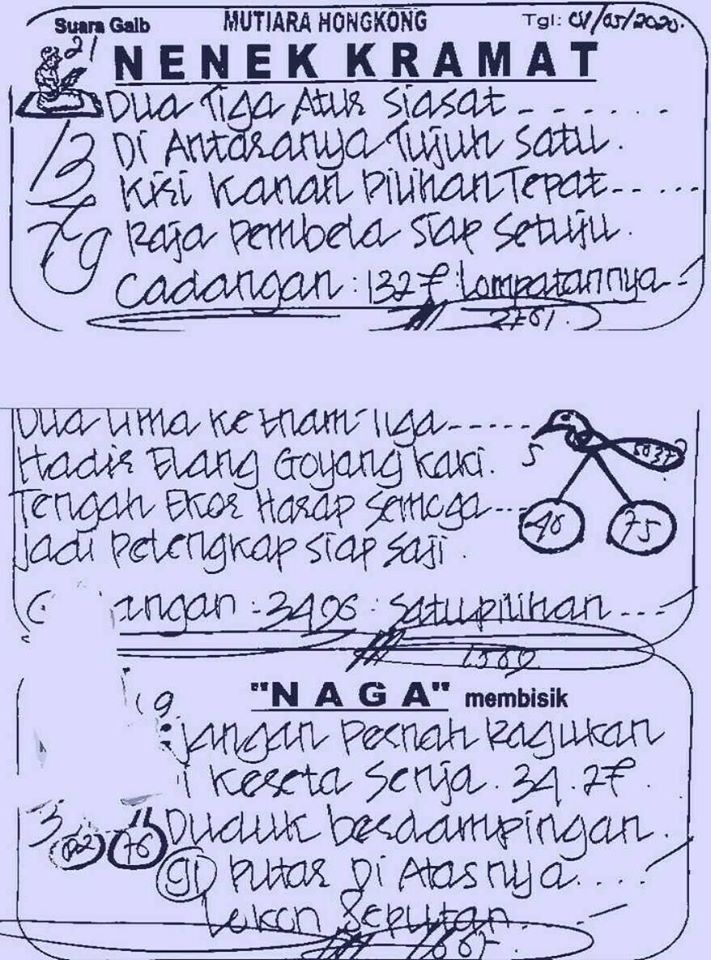 Suara Gaib MUTIARA HONGKONG Tgl: 01/05/2020.
21
NENEK KRAMAT
Dua Tiga Atur Siasat - - - . . . .
13 Di Antaranya Tujuh Satu.
Kiri Kanan Pilihan Tepat - - . . . .
79 Raja Pembela Siap Setuju.
Cadangan : 1327 Lompatannya - - -
2761.
Dua Lima Ke Enam Tiga - - - - -
Hadir Elang Goyang Kaki. 5 5037
Tengah Ekor Harap Semoga - - -
46 75
Jadi Pelengkap Siap Saji.
angan : 3496 : Satu pilihan - - -
1569
"NAGA" membisik
9
Jangan Pernah Ragukan
Kereta Senja. 34. 27.
3 Duduk berdampingan.
02 76
91 Putar Di Atasnya . . . .
Lokon Seputan.
1667.